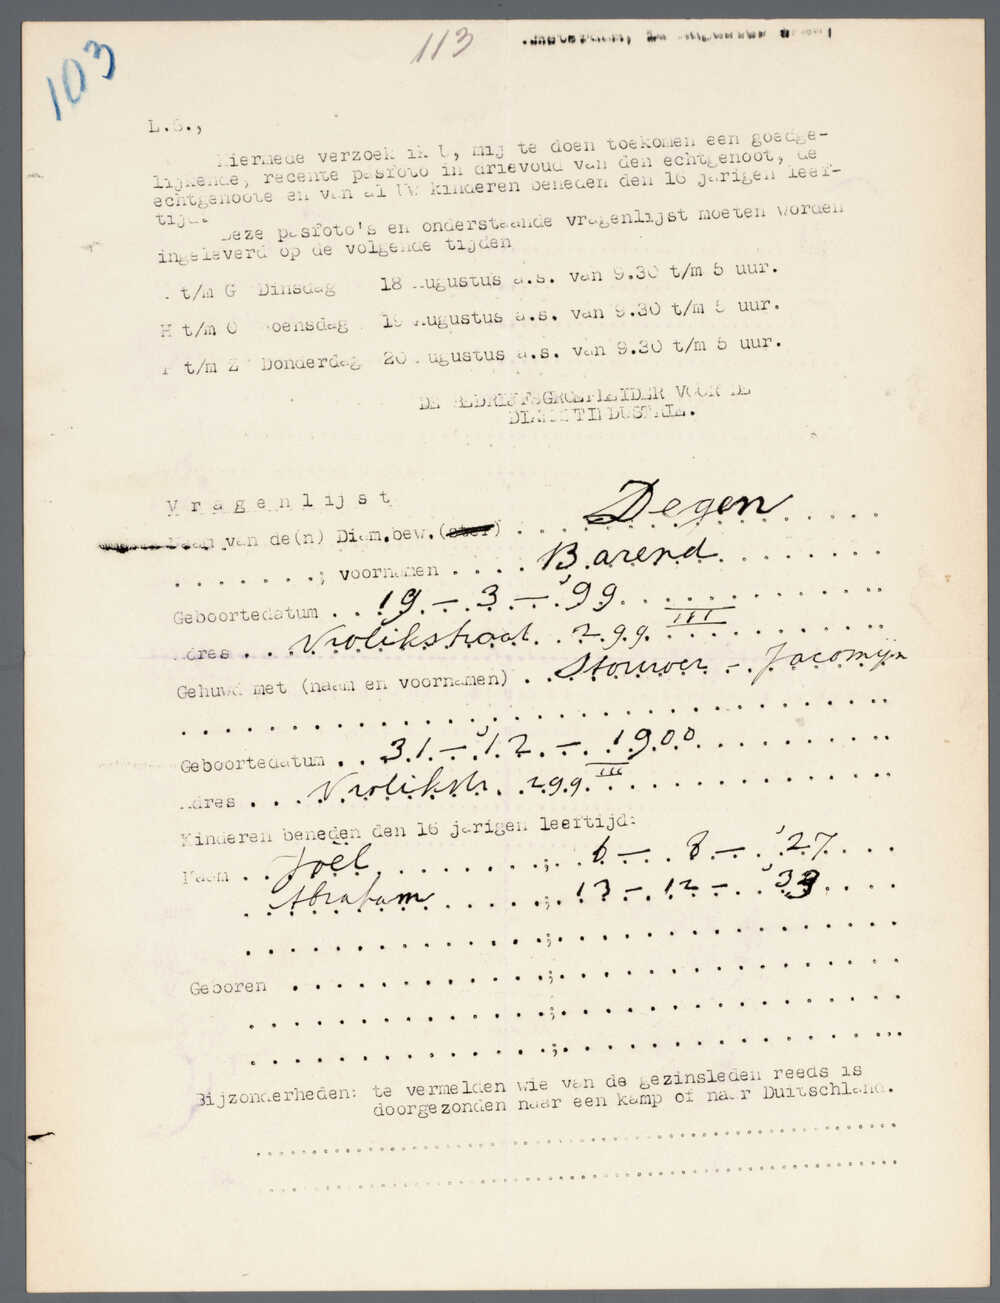 103
113
L.S.,
Hiermede verzoek ik U, mij te doen toekomen een goedge-
lijkende, recente pasfoto in drievoud van den echtgenoot, de
echtgenoote en van al Uw kinderen beneden den 16 jarigen leef-
tijd.
Deze pasfoto's en onderstaande vragenlijst moeten worden
ingeleverd op de volgende tijden
t/m G Dinsdag 18 Augustus a.s. van 9.30 t/m 5 uur.
H t/m O Woensdag 19 Augustus a.s. van 9.30 t/m 5 uur.
P t/m Z Donderdag 20 Augustus a.s. van 9.30 t/m 5 uur.
DE BEDRIJFSGROEPLEIDER VOOR DE
DIAMANTINDUSTRIE.
Vragenlijst
Naam van de(n) Diam.bew.(ster) . . . Degen
. . . . . . .; voornamen . . . . Barend
Geboortedatum . . 19 - 3 - '99
Adres . . Vrolikstraat 299 III
Gehuwd met (naam en voornamen) . . Stouwer - Jacomijn
Geboortedatum . . 31 - 12 - 1900
Adres . . . Vrolikstr. 299 III
Kinderen beneden den 16 jarigen leeftijd:
Naam . . Joël . . . . ; 6 - 8 - '27
Abraham . . . . ; 13 - 12 - '33
Geboren . . . . . . . . . . ;
Bijzonderheden: te vermelden wie van de gezinsleden reeds is
doorgezonden naar een kamp of naar Duitschland.